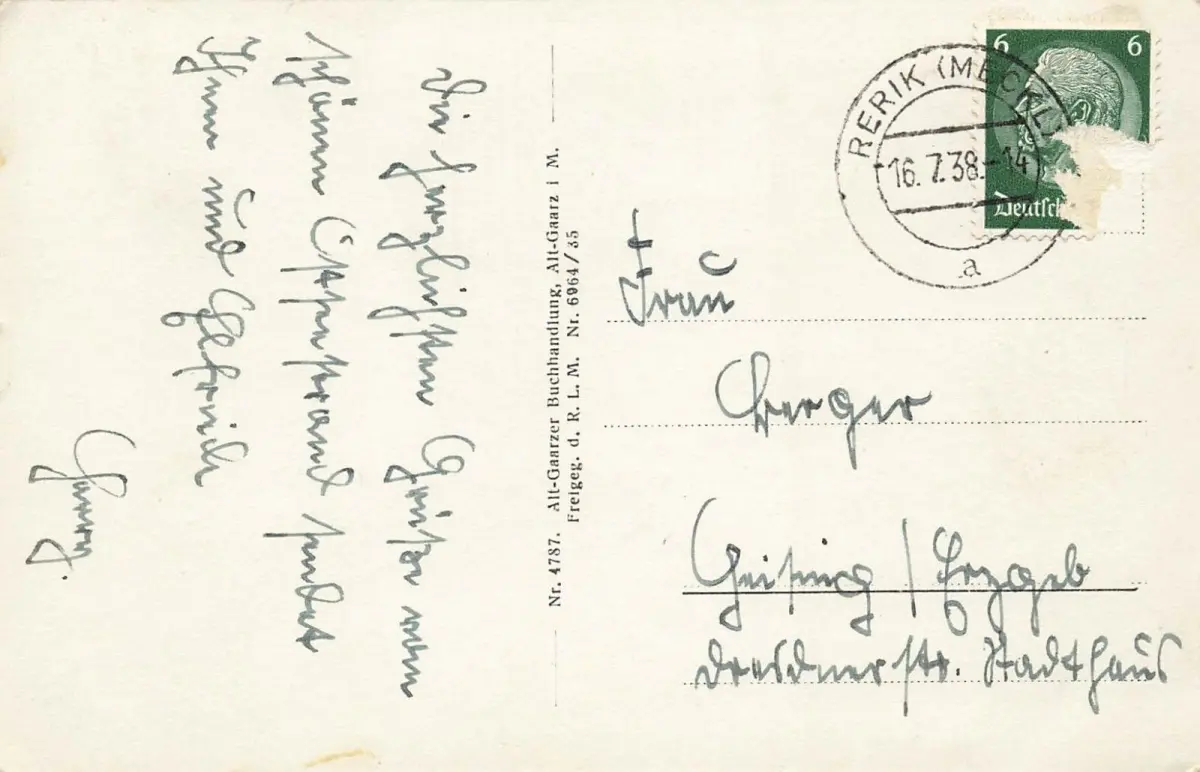 Die herzlichsten Grüße vom
schönen Ostseestrand sendet
Ihnen und Elfriede
Nr. 4787. Alt-Gaarzer Buchhandlung, Alt-Gaarz i M.
Freigeg. d. R. L. M. Nr. 6964/35
RERIK (MECKL)
16.7.38.-14
a
6 6
Deutsch
Frau
Berger
Geising / Erzgeb
Dresdnerstr. Stadthaus